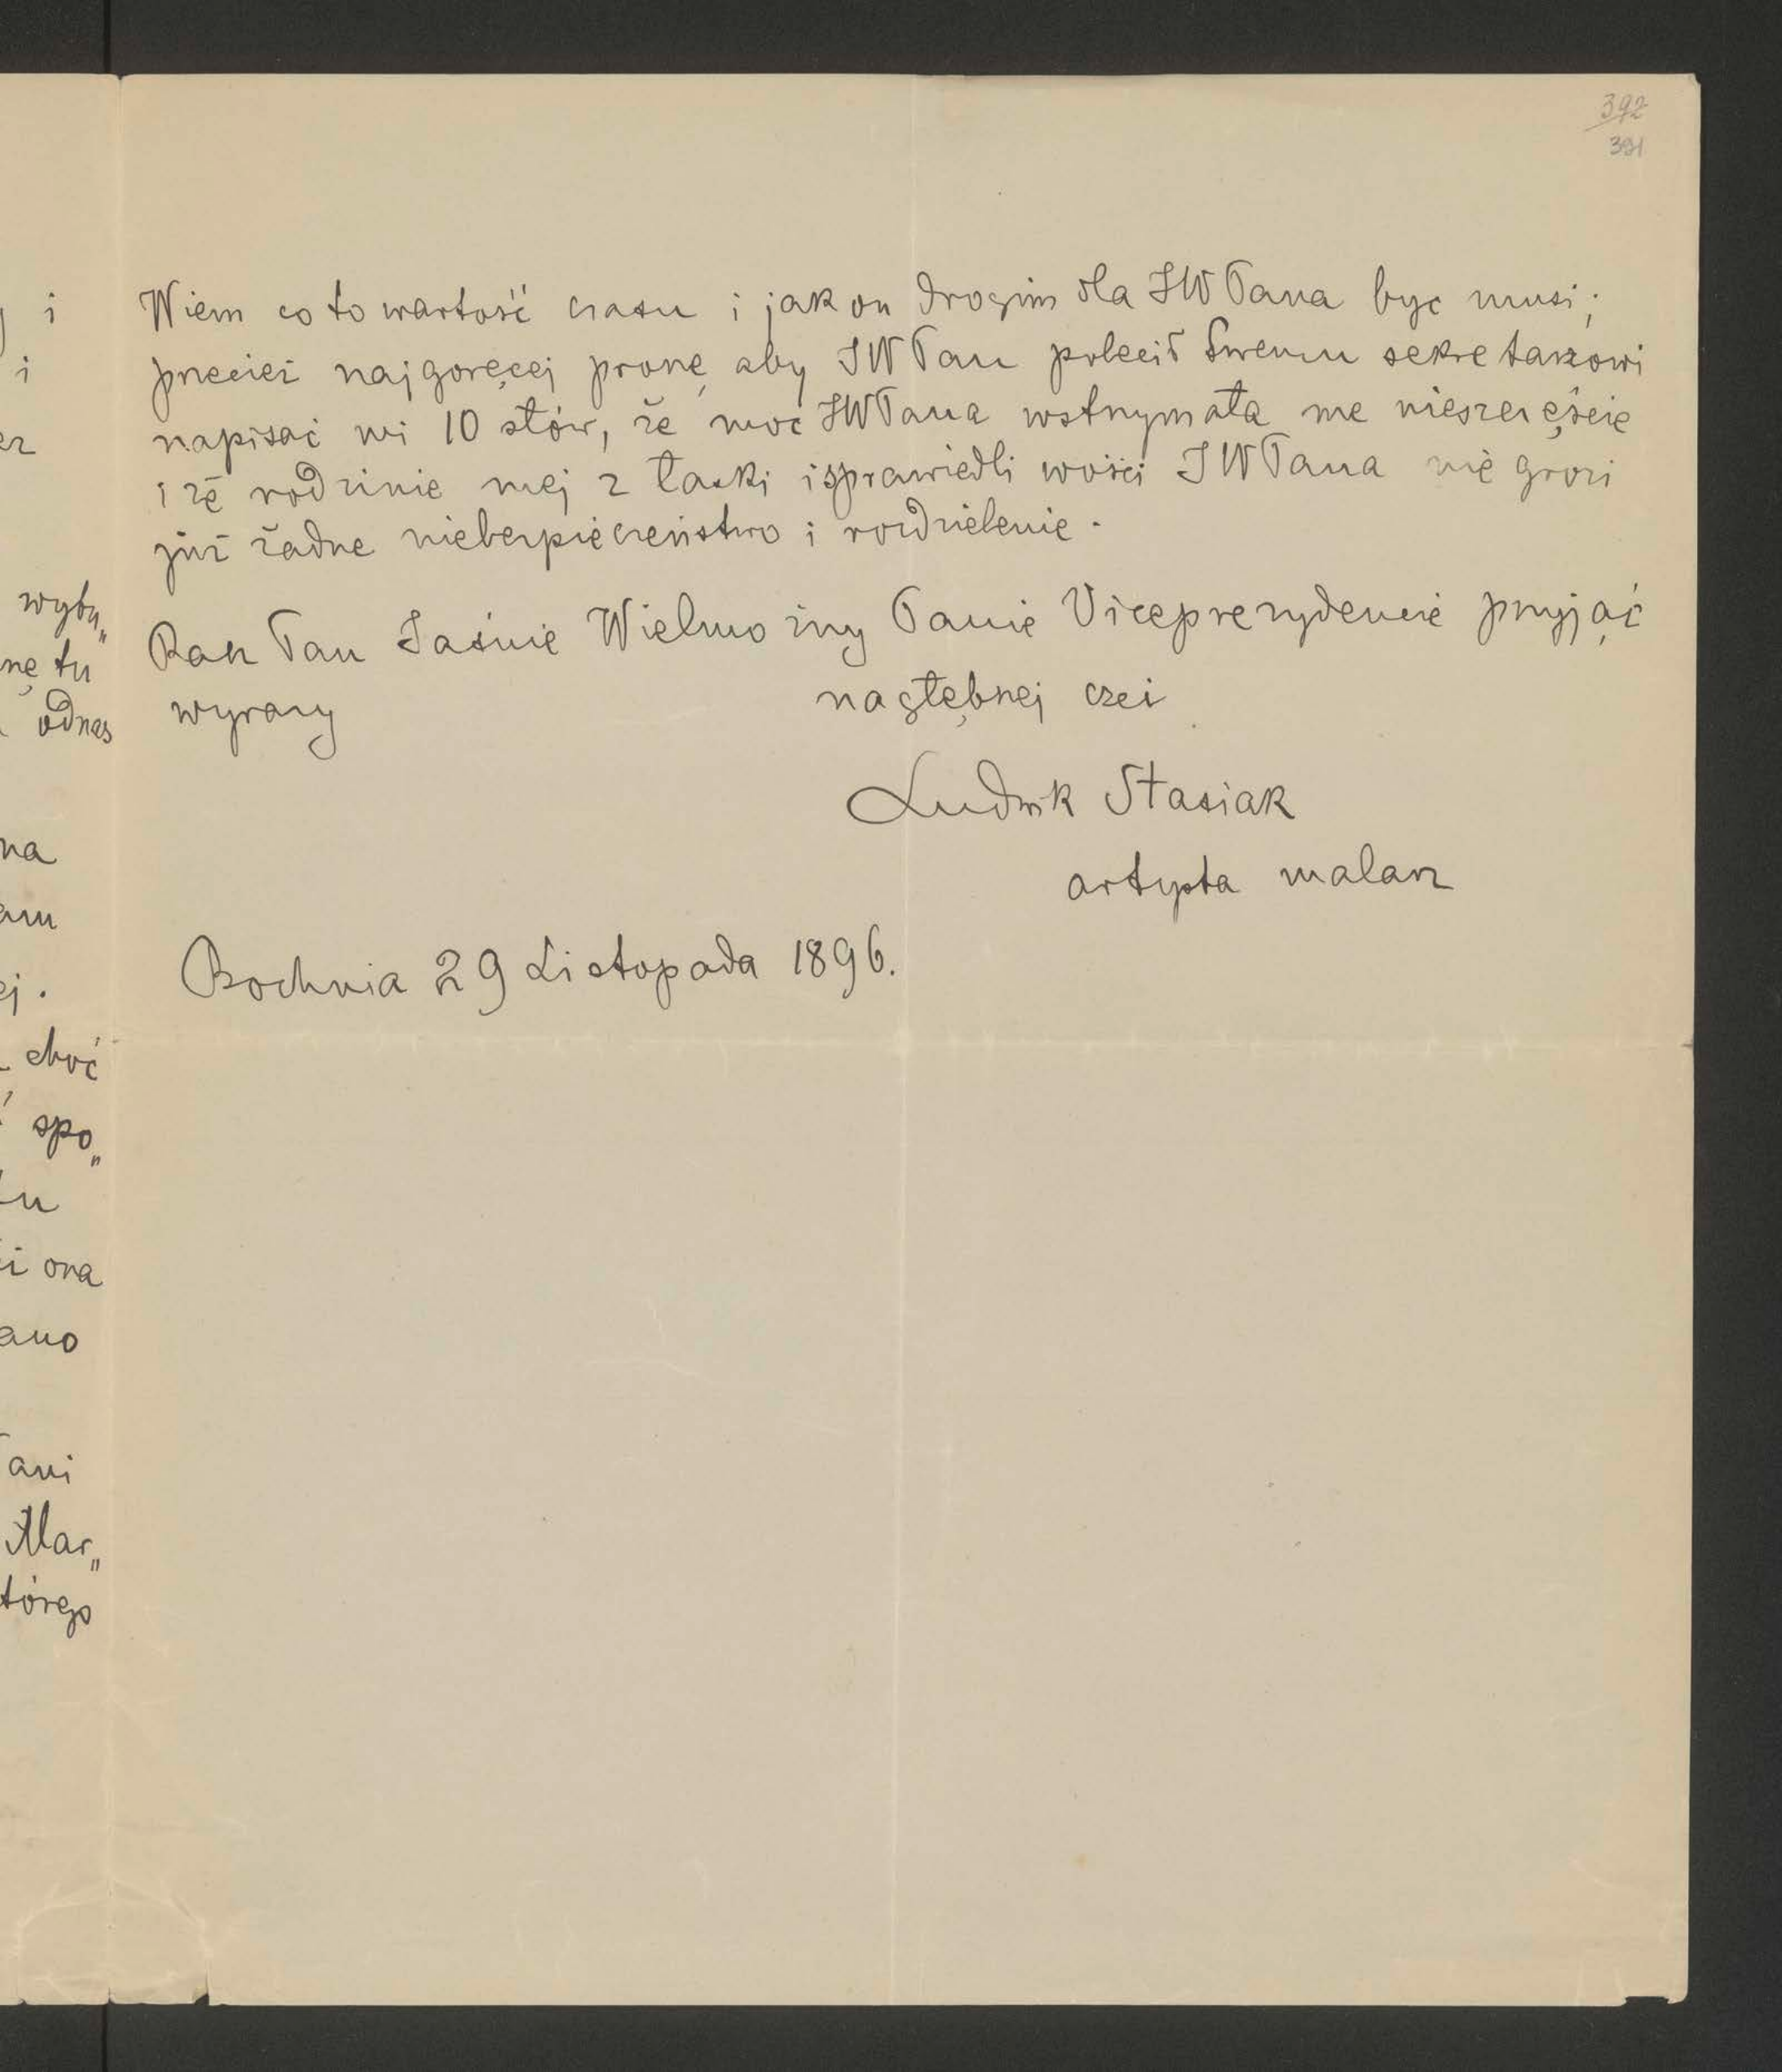 392
391
Wiem co to wartość czasu i jak on drogim dla JWPana byc musi;
przeciez najgoręcej proszę aby JWPan polecił Swemu sekretarzowi
napisać mi 10 słów, że moc JWPana wstrzymała me nieszczęście
i że rodzinie mej z łaski i sprawiedliwości JWPana nie grozi
już żadne niebezpieczeństwo i rozdzielenie.
Racz Pan Jaśnie Wielmożny Panie Viceprezydencie przyjąć
wyrazy nagłębnej czci
Ludwik Stasiak
artysta malarz
Bochnia 29 Listopada 1896.
i
i
wybu„
tu
odnas
na
choć
spo„
ona
Mar„